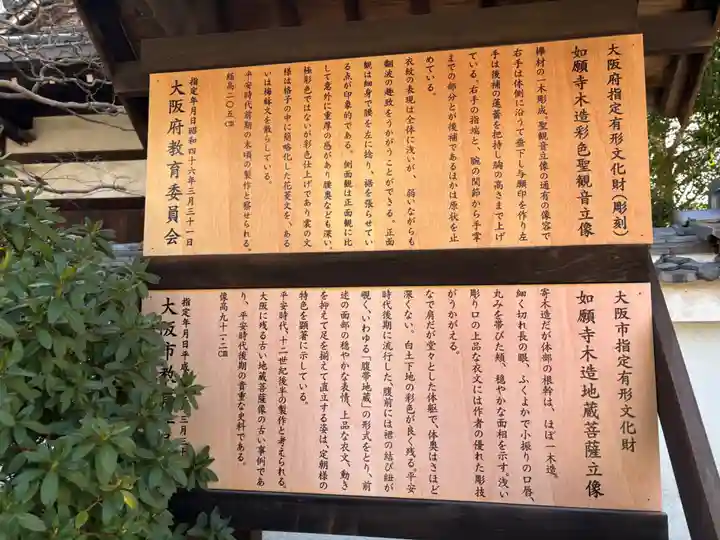 大阪府指定有形文化財(彫刻)
如願寺木造彩色聖観音立像
欅材の一木彫成。聖観音立像の通有の像容で
右手は体側に沿うて垂下し与願印を作り左
手は後補の蓮蕾を把持し胸の高さまで上げ
ている。右手の指端と、腕の関節から手掌
までの部分とが後補であるほかは原状を止
めている。
衣紋の表現は全体に浅いが、弱いながらも
翻波の趣致をうかがうことができる。正面
観は細身で腰を左に捻り、裾を張らせてい
る点が印象的である。側面観は正面観に比
して意外に重厚の感があり腰奥なども深い。
極彩色ではないが彩色仕上げであり裳の文
様は格子の中に簡略化した花菱文を、ある
いは梅鉢文を散らしている。
平安時代前期の末頃の製作と察せられる。
総高二〇五㎝
指定年月日昭和四十六年三月三十一日
大阪府教育委員会
大阪市指定有形文化財
如願寺木造地蔵菩薩立像
寄木造だが体部の根幹は、ほぼ一木造。
細く切れ長の眼、ふくよかで小振りの口唇、
丸みを帯びた頬、穏やかな面相を示す。浅い
彫り口の上品な衣文には作者の優れた彫技
がうかがえる。
なで肩だが堂々とした体躯で、体奥はさほど
深くない。白土下地の彩色が良く残る。平安
時代後期に流行した、腹前には裙の結び紐が
覗く、いわゆる「腹帯地蔵」の形式をとり、前
述の面部の穏やかな表情、上品な衣文、動き
を抑えて足を揃えて直立する姿は、定朝様の
特色を顕著に示している。
平安時代、十二世紀後半の製作と考えられる。
大阪に残る古い地蔵菩薩像の古い事例であ
り、平安時代後期の貴重な史料である。
像高九十一・二㎝
指定年月日平成
三月三十
大阪市教